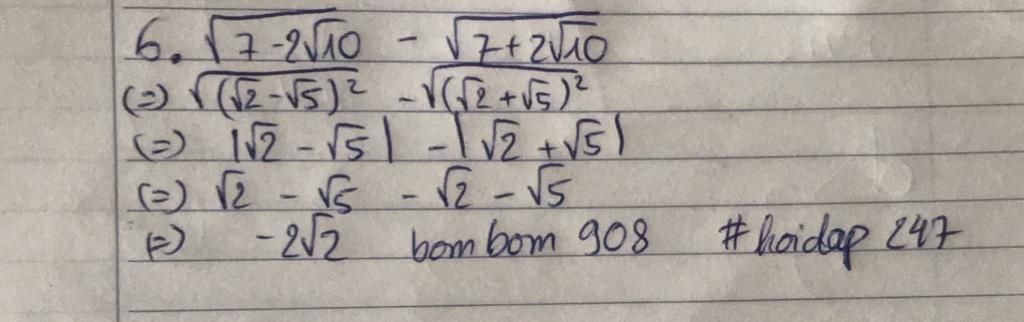 6. √(7-2√10) - √(7+2√10)
(=) √((√2-√5)²) - √((√2+√5)²)
(=) |√2 - √5| - |√2 + √5|
(=) √2 - √5 - √2 - √5
(=) -2√2 bombom 908 #hoidap 247